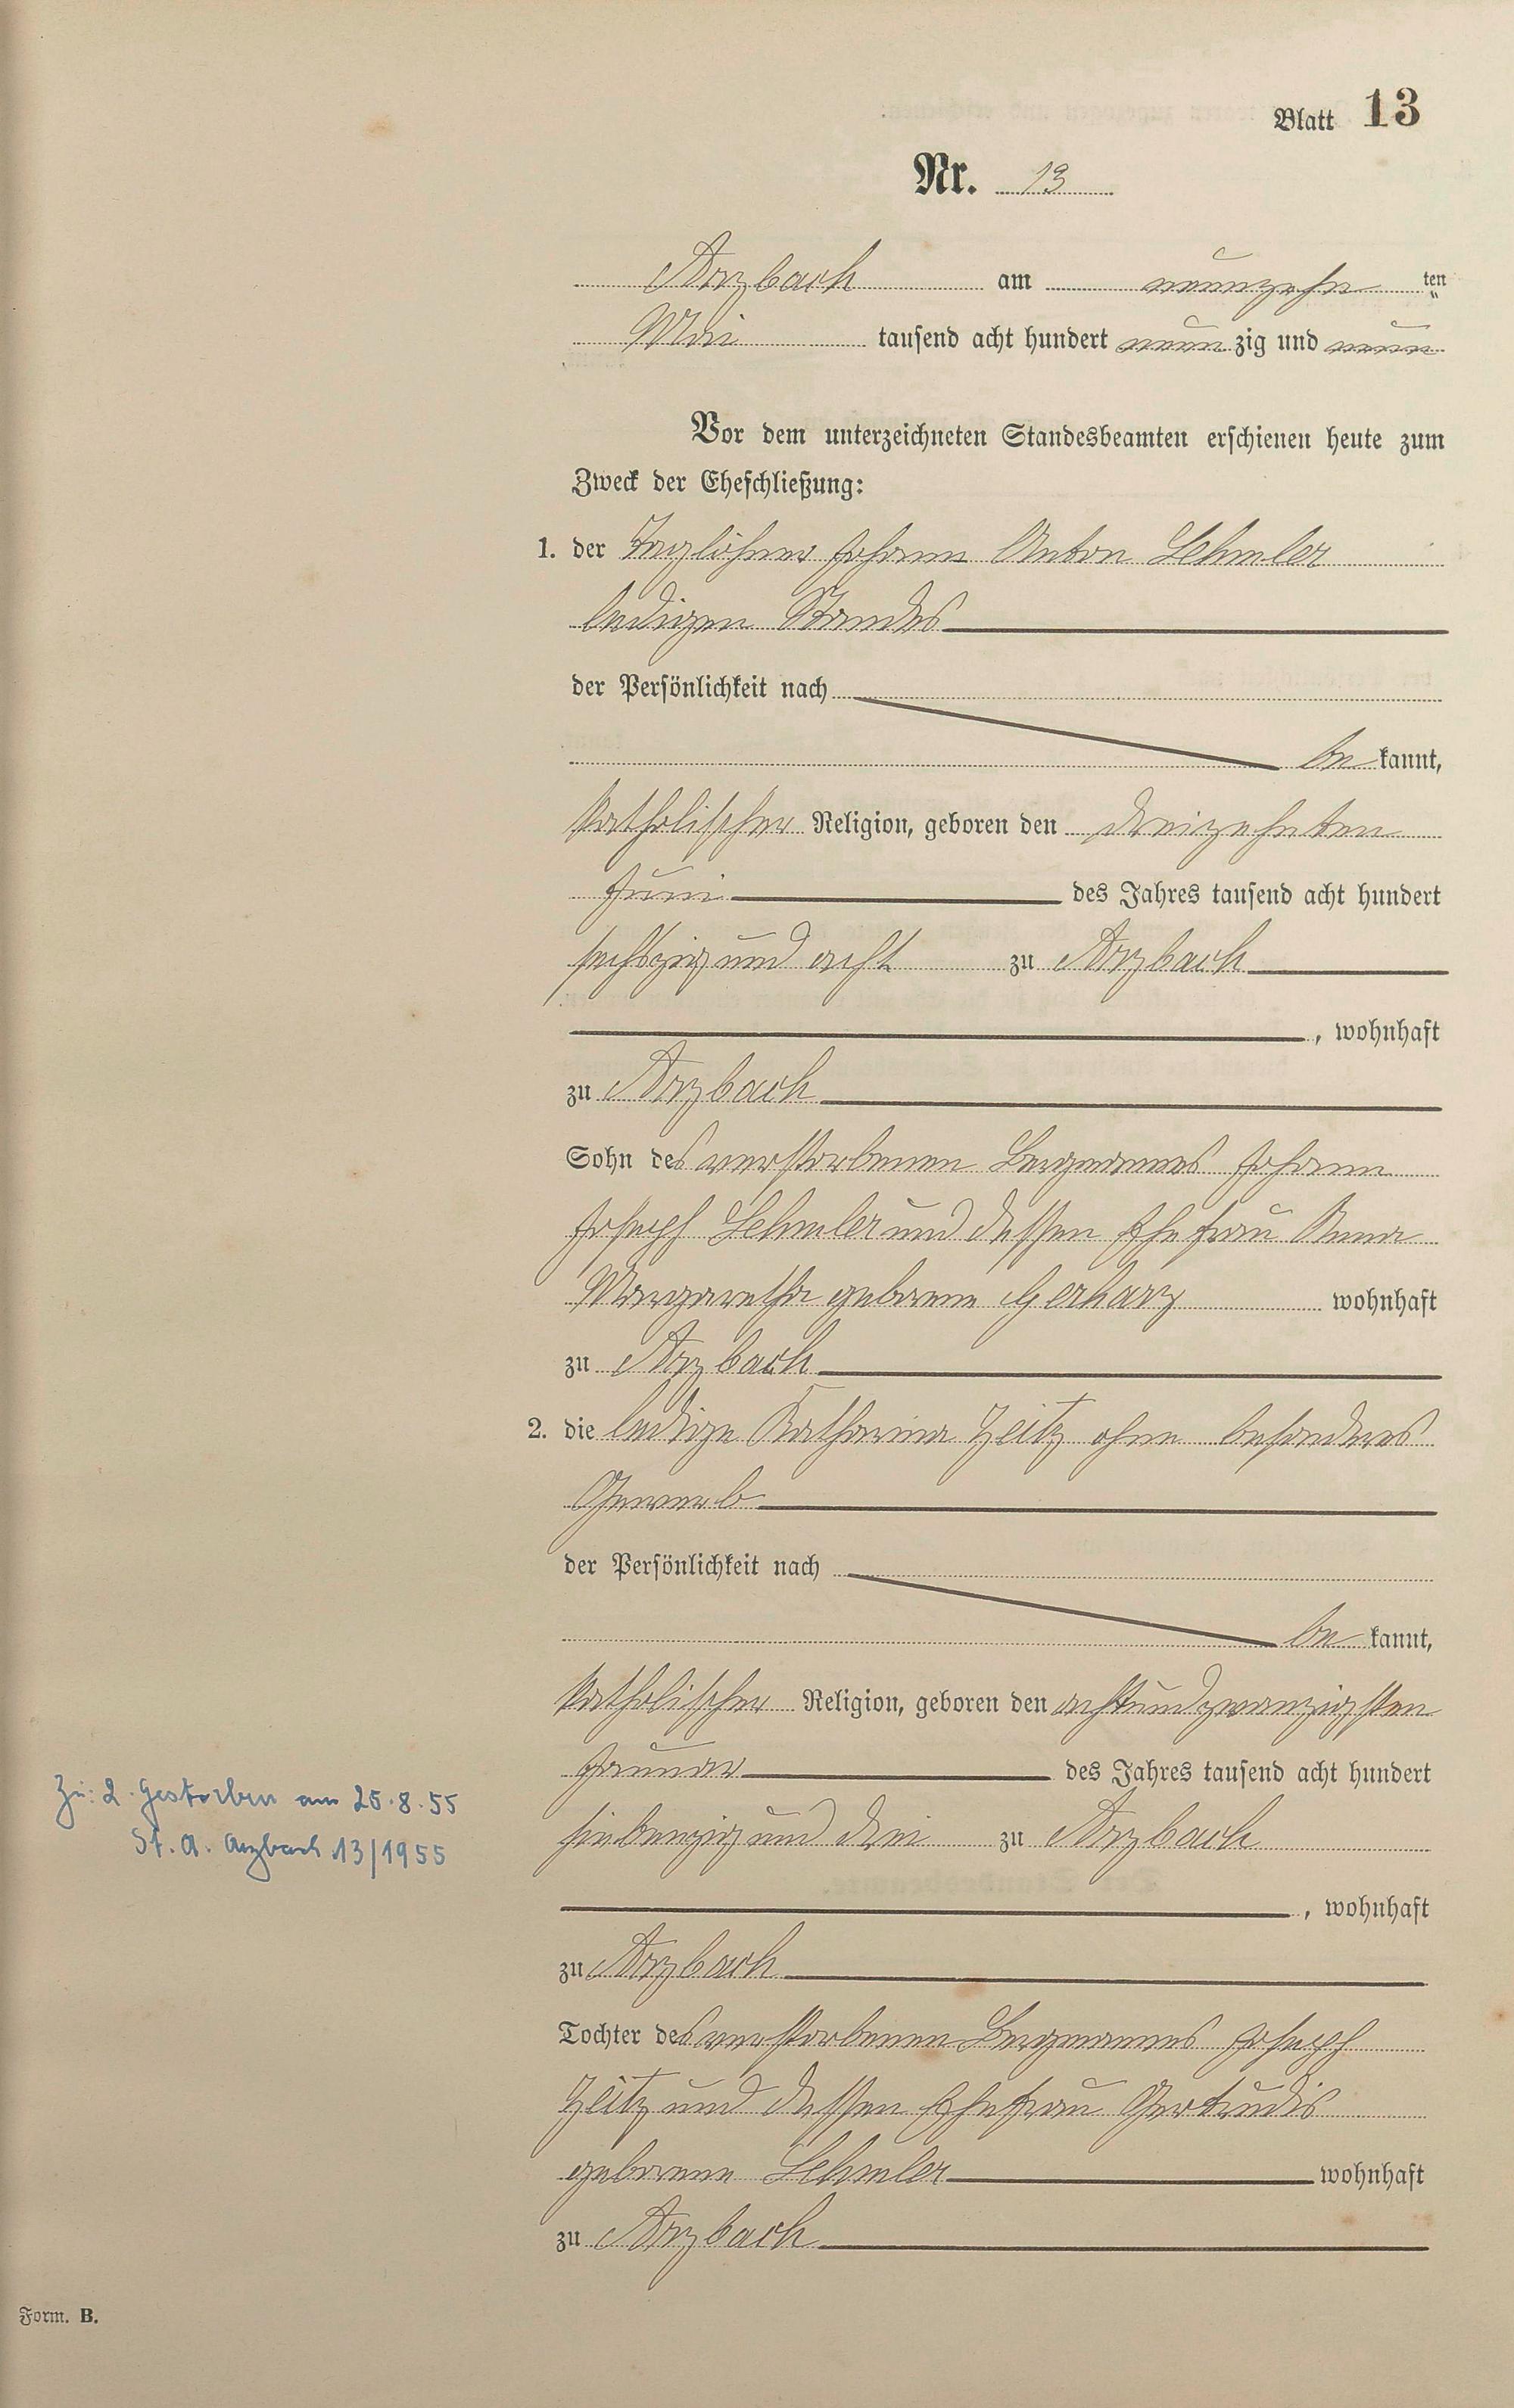 Blatt 13
Nr. 13
Arzbach am neunzehn ten
Mai tausend acht hundert neun zig und neun
Vor dem unterzeichneten Standesbeamten erschienen heute zum
Zweck der Eheschließung:
1. der Taglöhner Johann Anton Lehmler
ledigen Standes
der Persönlichkeit nach
be kannt,
katholischer Religion, geboren den dreizehnten
Juni des Jahres tausend acht hundert
sechszig und acht zu Arzbach
, wohnhaft
zu Arzbach
Sohn des verstorbenen Bergmannes Johann
Joseph Lehmler und dessen Ehefrau Anna
Margaretha geborene Gerharz wohnhaft
zu Arzbach
2. die ledige Katharina Zeitz ohne besonderes
Gewerb
der Persönlichkeit nach
be kannt,
katholischer Religion, geboren den achtundzwanzigsten
Januar des Jahres tausend acht hundert
siebenzig und drei zu Arzbach
, wohnhaft
zu Arzbach
Tochter des verstorbenen Bergmannes Joseph
Zeitz und dessen Ehefrau Gertrudis
geborene Lehmler wohnhaft
zu Arzbach
Zu: 2. Gestorben am 25.8.55
St. A. Arzbach 13/1955
Form. B.